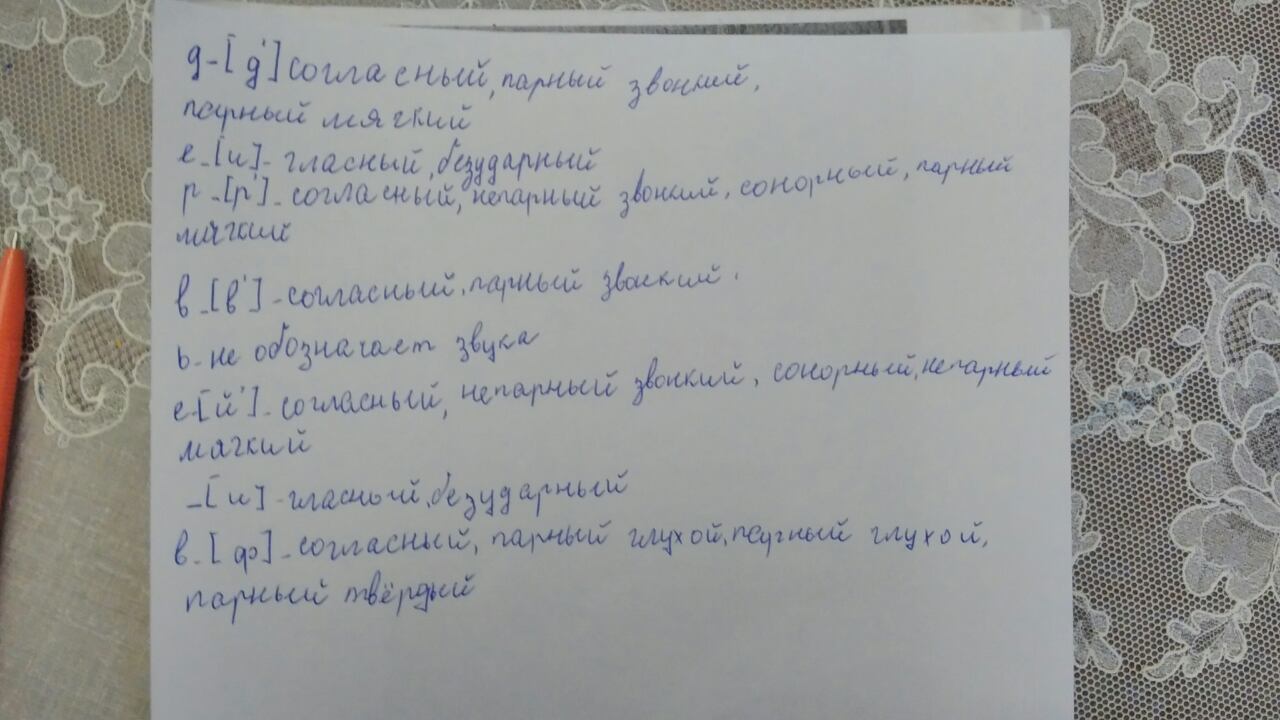 д-[д'] согласный, парный звонкий,
парный мягкий
е-[и]- гласный, безударный
р-[р']- согласный, непарный звонкий, сонорный, парный
мягкий
в-[в']-согласный, парный звонкий.
ь-не обозначает звука
е-[й']-согласный, непарный звонкий, сонорный, непарный
мягкий
-[и]-гласный, безударный
в-[ф]-согласный, парный глухой, парный глухой,
парный твёрдый